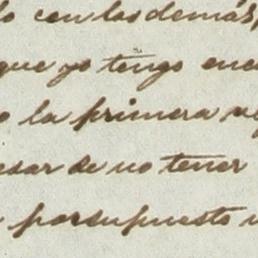 con las demás,
que yo tengo en
la primera
de no tener
por supuesto